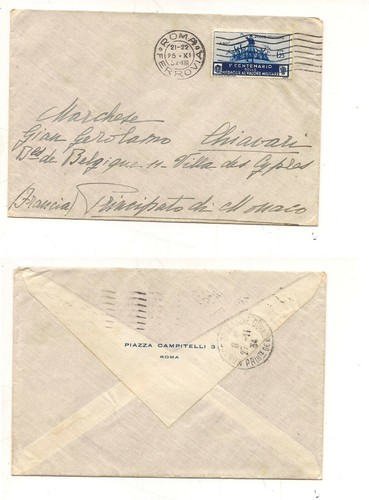 ROMA FERROVIA
21-22
25·XI
1º CENTENARIO
MEDAGLIE AL VALORE MILITARE
Marchese
Gian Gerolamo Chiavari
de Belgique 11 Villa des Cyprès
(Francia) Principato di Monaco
PIAZZA CAMPITELLI 3
ROMA
34